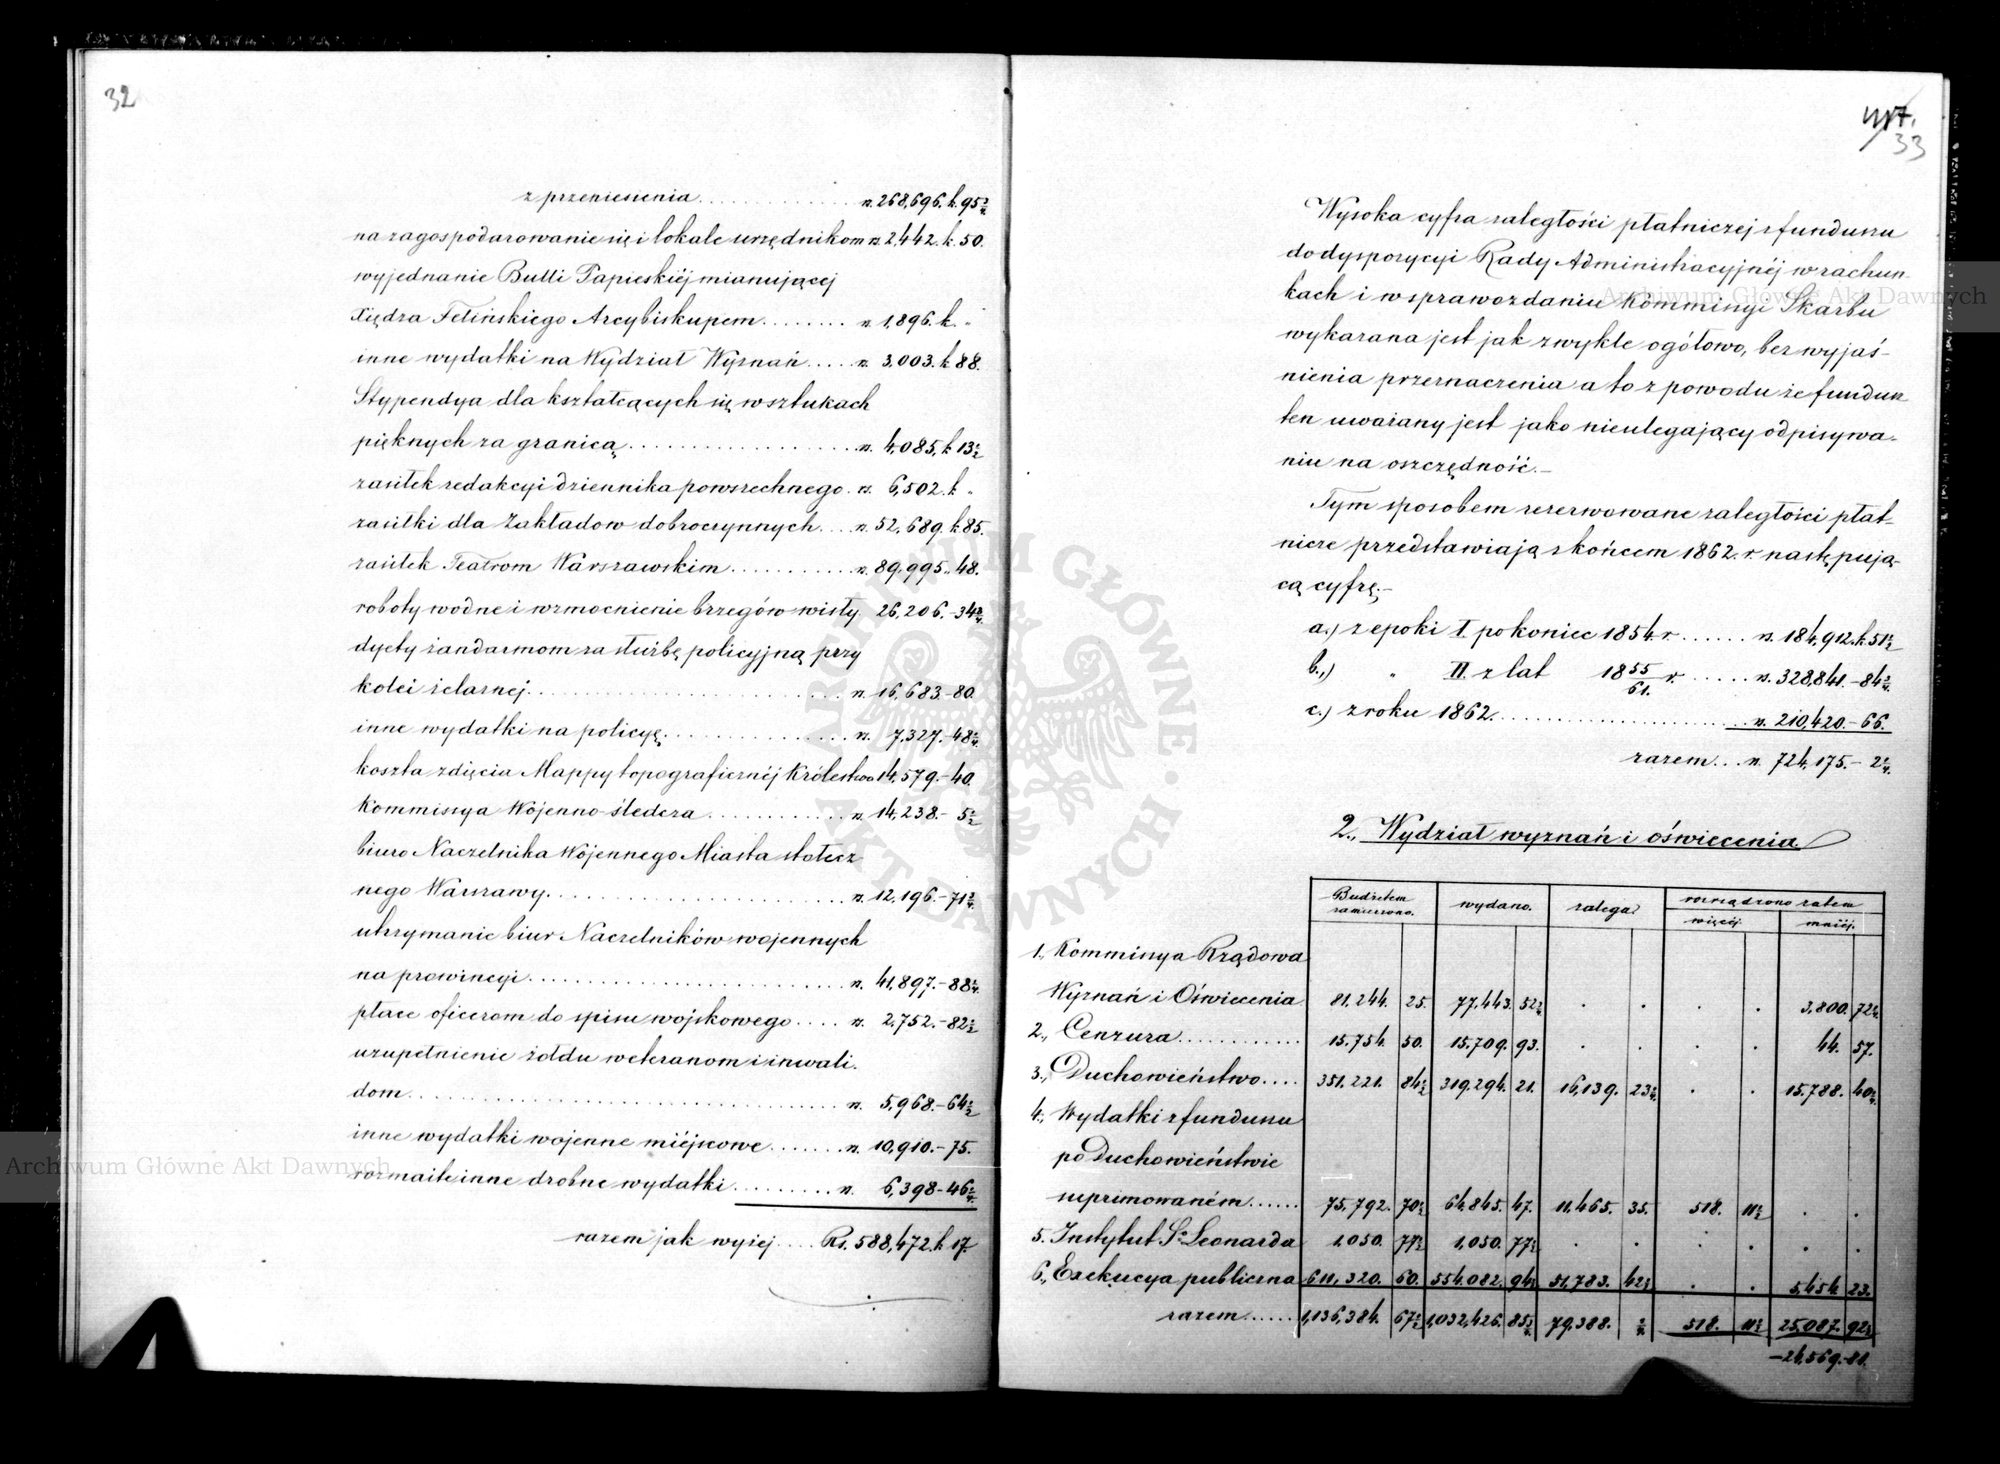 32
z przeniesienia . . . . . . . . . . rs. 268,696. k. 95 3/4.
na zagospodarowanie się i lokale urzędnikom rs. 2,442. k. 50.
wyjednanie Bulli Papieskiéj mianującej
Xiędza Felińskiego Arcybiskupem . . . . . . . . rs. 1,896. k. „
inne wydatki na Wydział Wyznań . . . . . rs. 3,003. k 88.
Stypendya dla kształcących się w sztukach
pięknych za granicą . . . . . . . . . . rs. 4,085. k 13 1/2
zasiłek redakcyi dziennika powszechnego . rs. 6,502. k „
zasiłki dla Zakładow dobroczynnych . . . rs. 52,689. k 85.
zasiłek Teatrom Warszawskim . . . . . . . . . . rs. 89,995 „ 48.
roboty wodne i wzmocnienie brzegów wisły 26,206. – 34 3/4.
dyety żandarmom za służbę policyjną przy
kolei żelaznej . . . . . . . . . . rs. 16,683. – 80.
inne wydatki na policyę . . . . . . . . . . rs. 7,327. – 48
koszta zdięcia Mappy topograficznéj Królestwa 14,579. – 40.
Kommissya Wojenno-śledcza . . . . . . . . . . rs. 14,238. – 5 1/2
biuro Naczelnika Wojennego Miasta stołecz
nego Warszawy . . . . . . . . . . rs. 12,196. – 71
utrzymanie biur Naczelników wojennych
na prowincyi . . . . . . . . . . rs. 41,897. – 88
płace oficerom do spisu wojskowego . . . . rs. 2,752. – 82 1/2
uzupełnienie żołdu weteranom i inwali.
dom . . . . . . . . . . rs. 5,968. – 64 1/2
inne wydatki wojenne miéjscowe . . . . . . . rs. 10,910. – 75.
rozmaite inne drobne wydatki . . . . . . . . . rs. 6,398 – 46
razem jak wyżej . . . . Rs. 588,472. k 17.
33
Wysoka cyfra zaległości płatniczej z funduszu
do dyspozycyi Rady Administracyjnéj w rachun
kach i w sprawozdaniu Kommissyi Skarbu
wykazana jest jak zwykle ogółowo, bez wyjaś–
nienia przeznaczenia a to z powodu że fundusz
ten uważany jest jako nieulegający odpisywa–
niu na oszczędność. –
Tym sposobem rezerwowane zaległości płat–
nicze przedstawiają z końcem 1862. r. następują–
cą cyfrę: –
a.) z epoki I. po koniec 1854 r. . . . . . rs. 184,912. k. 51 1/2
b.,) „ II. z lat 1855/61. r. . . . . . rs. 328,841. – 84
c.) z roku 1862. . . . . . . . . . . rs. 210,420. – 66.
razem . . . rs. 724,175. – 2
2., Wydział wyznań i oświecenia.
Budżetem zamieszczono. wydano. zalega rozrządzono zatem
więcéj. mniéj.
1., Kommissya Rządowa
Wyznań i Oświecenia 81.244. 25. 77.443. 52 . . . . 3,800. 72
2., Cenzura . . . . . . . . . . 15.754. 50. 15.709. 93. . . . . 44. 57.
3., Duchowieństwo . . . . 351.221. 84 1/2 319.294. 21. 16,139. 23 . . 15.788. 40
4., Wydatki z funduszu
po Duchowieństwie
suprimowaném . . . . . . 75,792. 70 1/2 64,845. 47. 11,465. 35. 518. 11 1/2 . .
5. Instytut S-o Leonarda 1,050. 77 1/2 1,050. 77 1/2 . . . . . .
6., Exekucya publiczna 611,320. 60. 554.082. 94 51,783. 42 . . 5,454. 23.
razem . . . . . . 1,136,384. 67 1/2 1,032,426. 85 79,388. 518. 11 1/2 25,087. 92
– 24,569. – 81.
Archiwum Główne Akt Dawnych
Archiwum Główne Akt Dawnych
ARCHIWUM GŁÓWNE AKT DAWNYCH